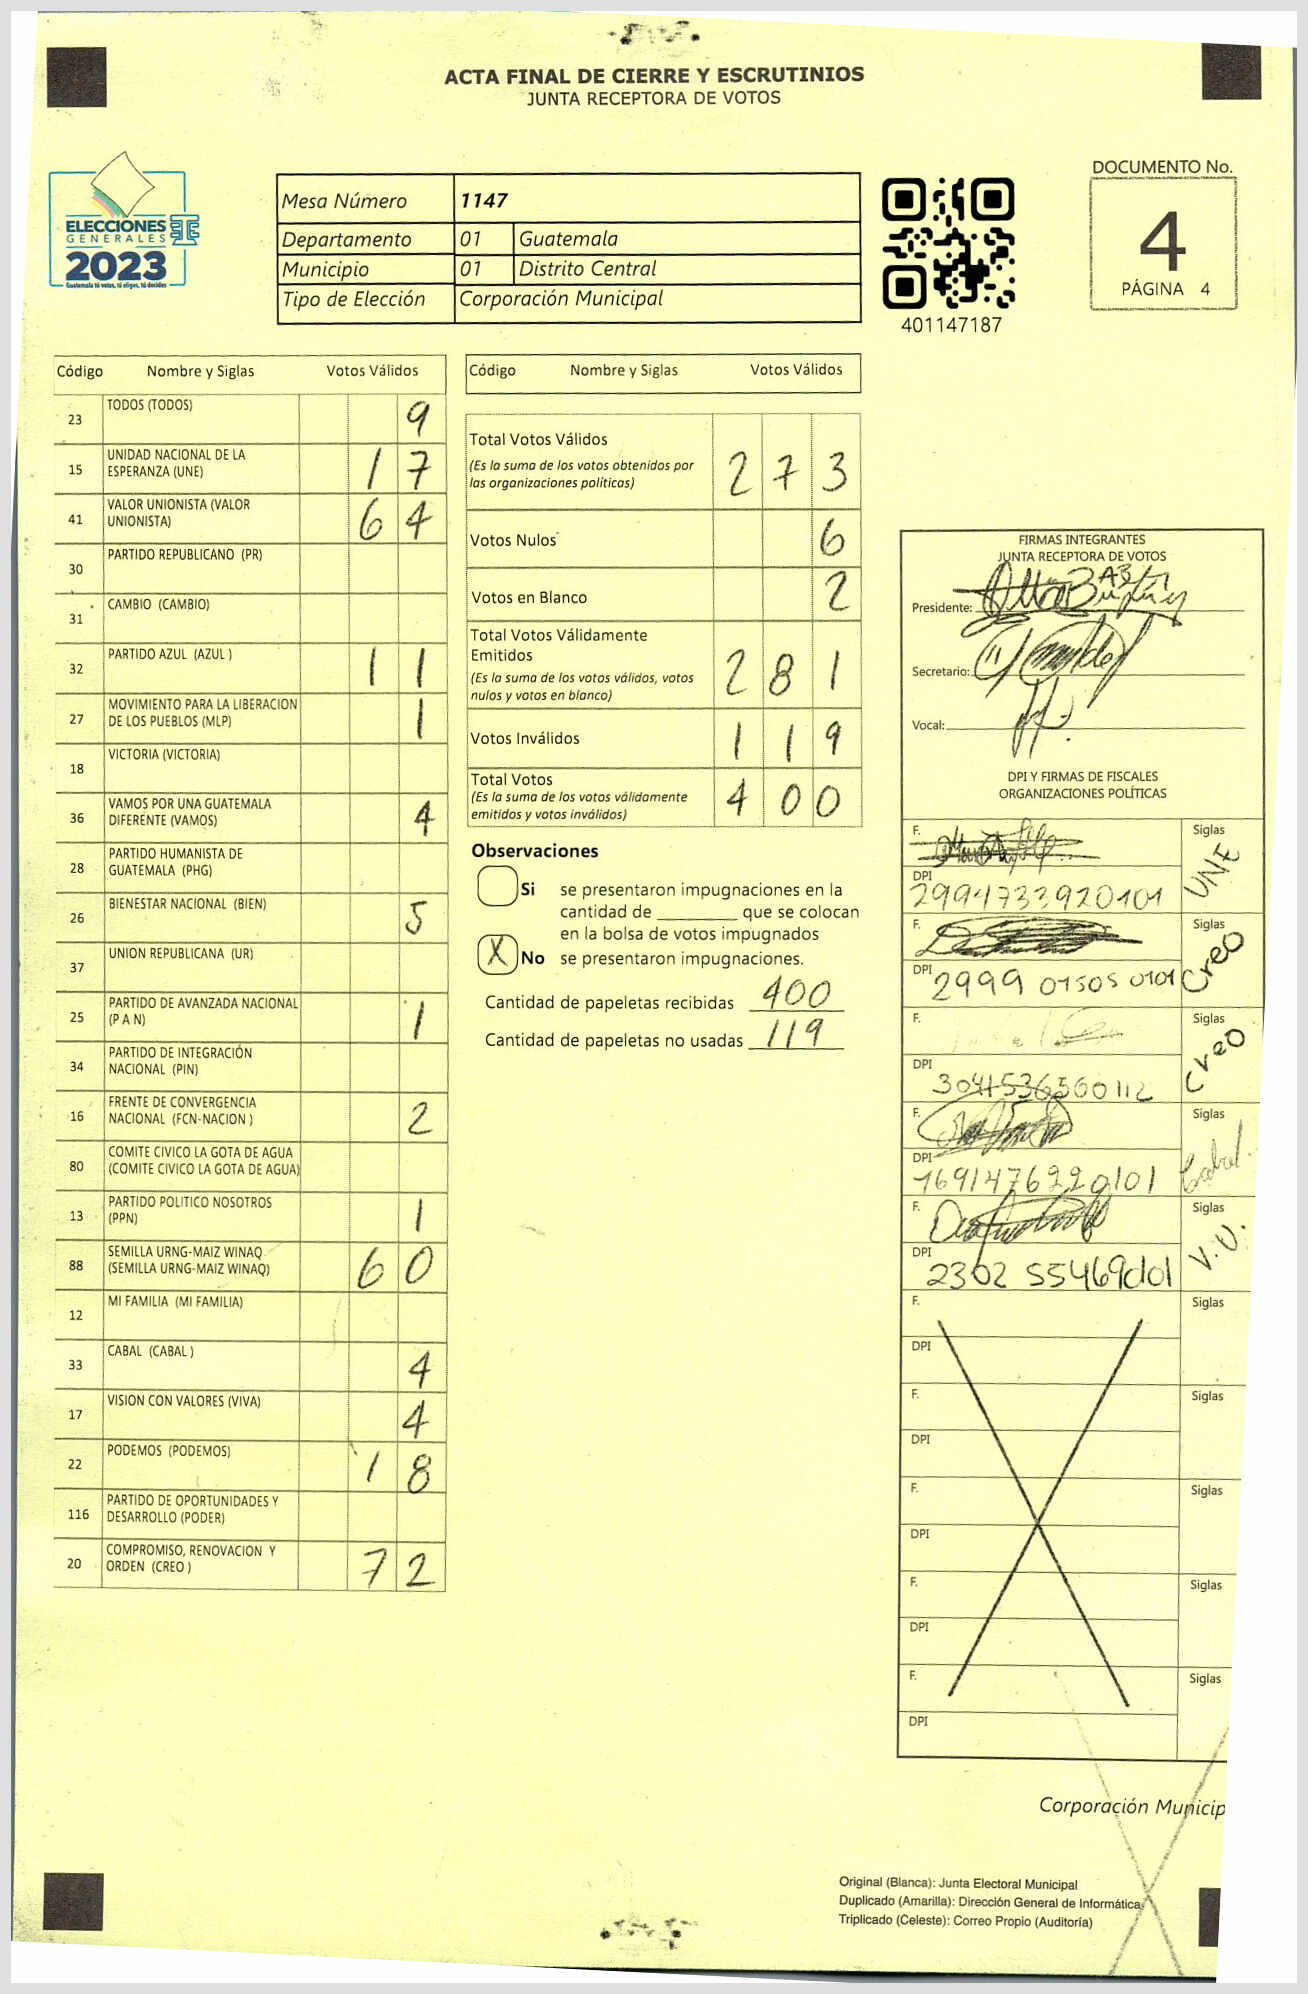 ACTA FINAL DE CIERRE Y ESCRUTINIOS
JUNTA RECEPTORA DE VOTOS
ELECCIONES
GENERALES
2023
Guatemala tú votas, tú eliges, tú decides
Mesa Número 1147
Departamento 01 Guatemala
Municipio 01 Distrito Central
Tipo de Elección Corporación Municipal
401147187
DOCUMENTO No.
4
PÁGINA 4
Código Nombre y Siglas Votos Válidos
23 TODOS (TODOS) 9
15 UNIDAD NACIONAL DE LA
ESPERANZA (UNE) 17
41 VALOR UNIONISTA (VALOR
UNIONISTA) 64
30 PARTIDO REPUBLICANO (PR)
31 CAMBIO (CAMBIO)
32 PARTIDO AZUL (AZUL ) 11
27 MOVIMIENTO PARA LA LIBERACION
DE LOS PUEBLOS (MLP) 1
18 VICTORIA (VICTORIA)
36 VAMOS POR UNA GUATEMALA
DIFERENTE (VAMOS) 4
28 PARTIDO HUMANISTA DE
GUATEMALA (PHG)
26 BIENESTAR NACIONAL (BIEN) 5
37 UNION REPUBLICANA (UR)
25 PARTIDO DE AVANZADA NACIONAL
(P A N) 1
34 PARTIDO DE INTEGRACIÓN
NACIONAL (PIN)
16 FRENTE DE CONVERGENCIA
NACIONAL (FCN-NACION ) 2
80 COMITE CIVICO LA GOTA DE AGUA
(COMITE CIVICO LA GOTA DE AGUA)
13 PARTIDO POLITICO NOSOTROS
(PPN) 1
88 SEMILLA URNG-MAIZ WINAQ
(SEMILLA URNG-MAIZ WINAQ) 60
12 MI FAMILIA (MI FAMILIA)
33 CABAL (CABAL ) 4
17 VISION CON VALORES (VIVA) 4
22 PODEMOS (PODEMOS) 18
116 PARTIDO DE OPORTUNIDADES Y
DESARROLLO (PODER)
20 COMPROMISO, RENOVACION Y
ORDEN (CREO ) 72
Código Nombre y Siglas Votos Válidos
Total Votos Válidos
(Es la suma de los votos obtenidos por
las organizaciones políticas) 273
Votos Nulos 6
Votos en Blanco 2
Total Votos Válidamente
Emitidos
(Es la suma de los votos válidos, votos
nulos y votos en blanco) 281
Votos Inválidos 119
Total Votos
(Es la suma de los votos válidamente
emitidos y votos inválidos) 400
Observaciones
Si se presentaron impugnaciones en la
cantidad de ________ que se colocan
en la bolsa de votos impugnados
X No se presentaron impugnaciones.
Cantidad de papeletas recibidas 400
Cantidad de papeletas no usadas 119
FIRMAS INTEGRANTES
JUNTA RECEPTORA DE VOTOS
Presidente:
Secretario:
Vocal:
DPI Y FIRMAS DE FISCALES
ORGANIZACIONES POLÍTICAS
F. Siglas UNE
DPI 2994733920101
F. Siglas Creo
DPI 2999 01505 0101
F. Siglas Creo
DPI 3041536560112
F. Siglas Cabal
DPI 1691476220101
F. Siglas V.U.
DPI 2302 55469 0101
F. Siglas
DPI
F. Siglas
DPI
F. Siglas
DPI
F. Siglas
DPI
F. Siglas
DPI
Corporación Municip
Original (Blanca): Junta Electoral Municipal
Duplicado (Amarilla): Dirección General de Informática
Triplicado (Celeste): Correo Propio (Auditoría)